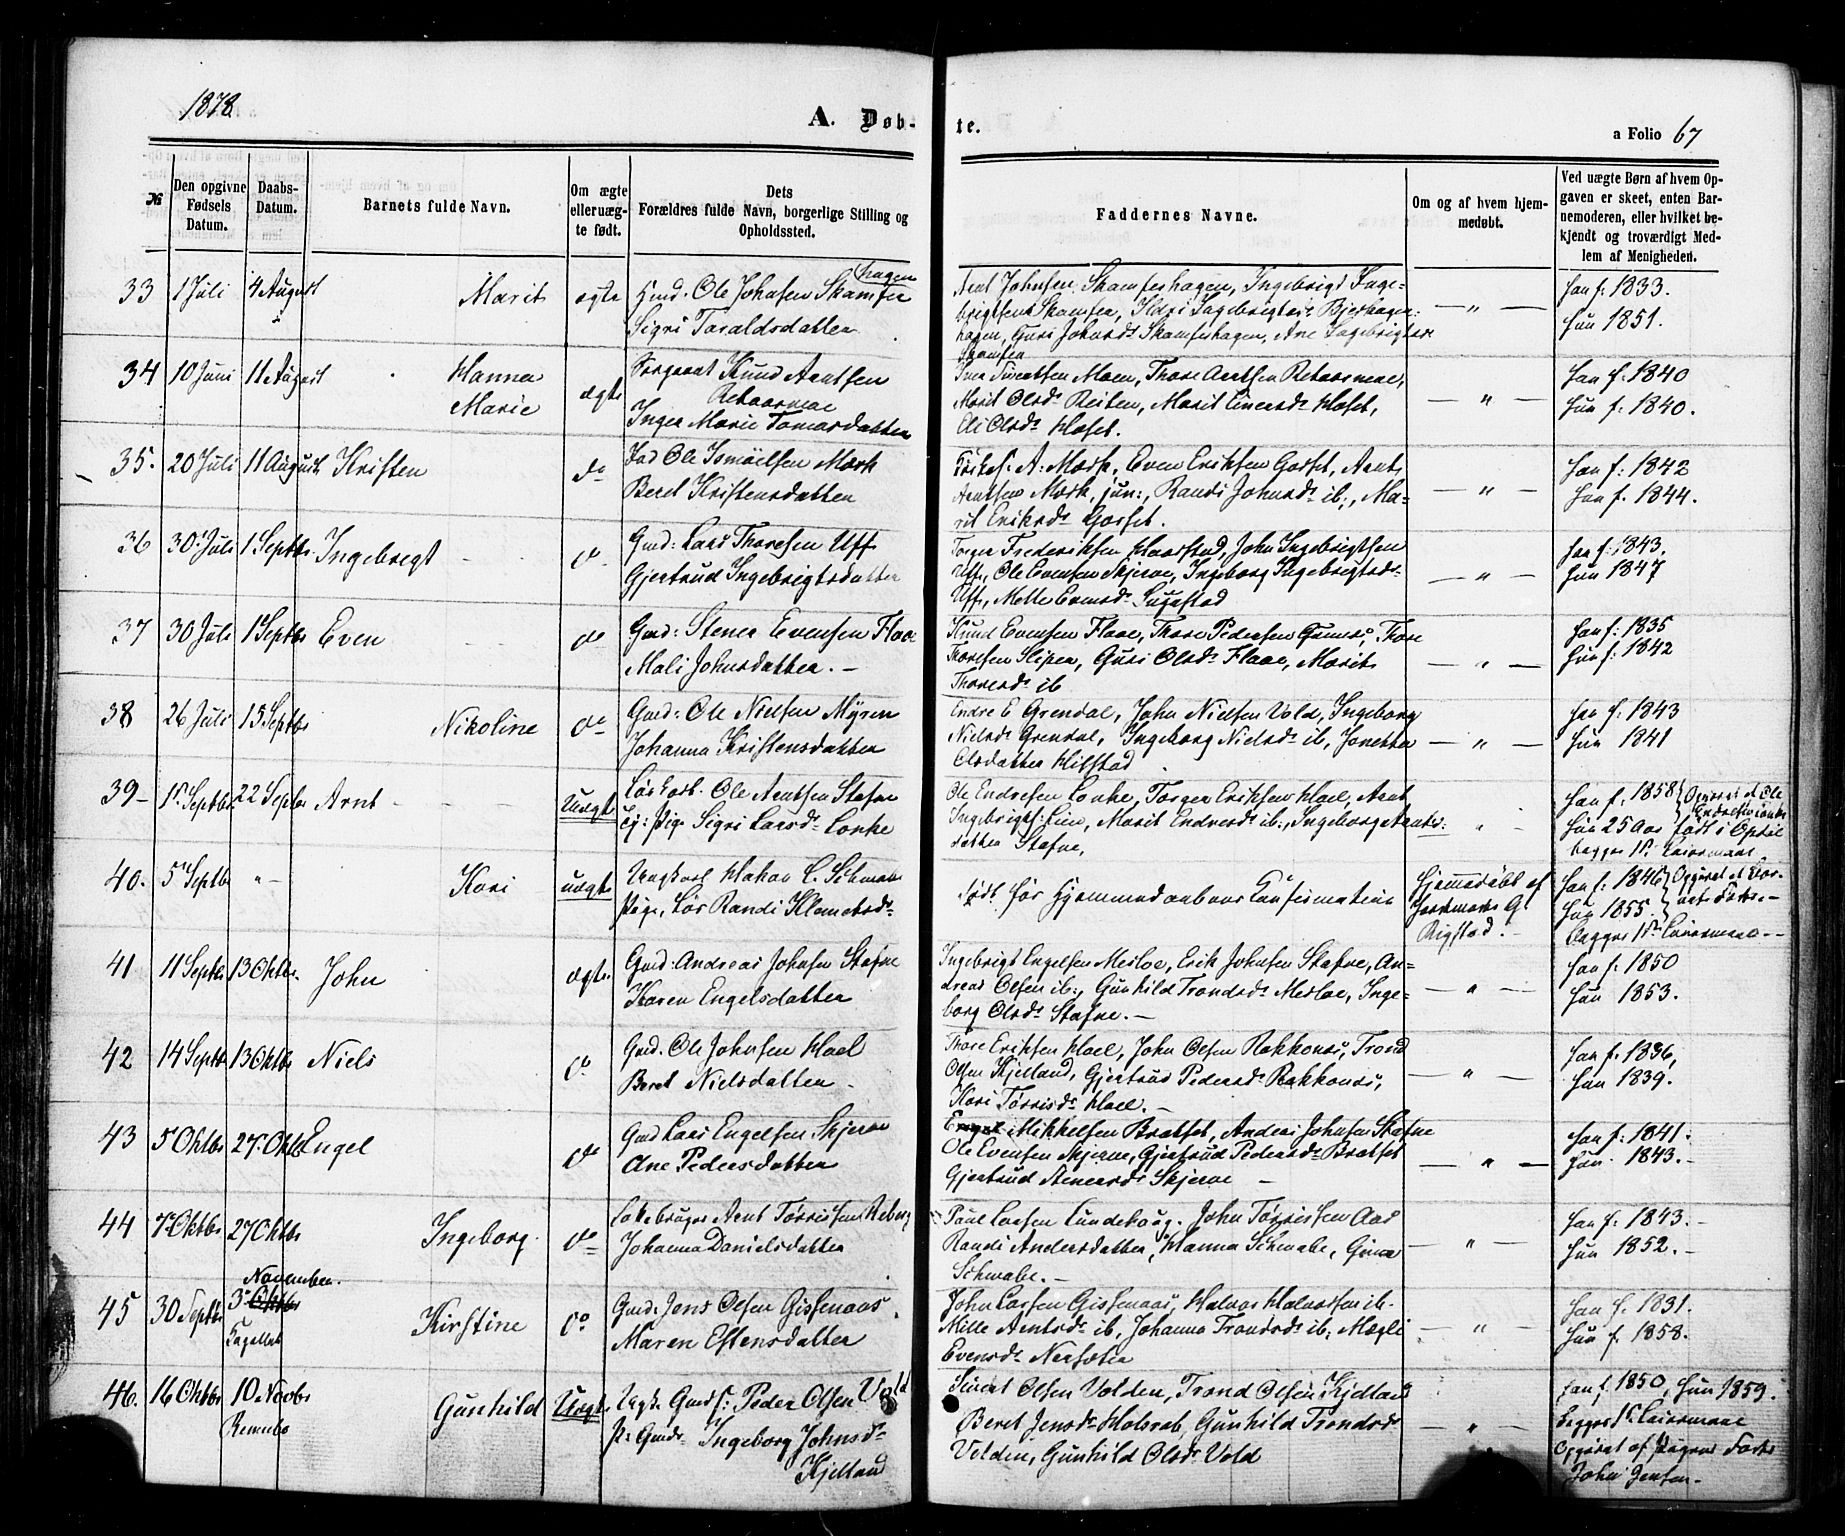 1878
A. Døb-
te.
a Folio 67
№
Den opgivne Fødsels Datum.
Daabs-Datum.
Barnets fulde Navn.
Om ægte eller uæg-te født.
Dets Forældres fulde Navn, borgerlige Stilling og Opholdssted.
Faddernes Navne.
Om og af hvem hjem-medøbt.
Ved uægte Børn af hvem Op-gaven er skeet, enten Bar-nemoderen, eller hvilket be-kjendt og troværdigt Med-lem af Menigheden.
33 1 Juli 4 August Marit ægte Gmd: Ole Johnsen Skamfer
hagen
Sigri Taraldsdatter
Arnt Johnsen Skamferhagen, Ingebrigt Inge-
brigtsen Skamfer, Ildri Ingebrigtsd. Bjerkager-
hagen, Guri Johnsd. Skamferhagen, Ane Ingebrigtsd.
Skamfer
— „ —
Han f: 1833.
Hun 1851.
34 10 Juni 11 August Hanna
Marie
ægte
Knud Arntsen
Inger Marie Tomasdatter
Moen, Thore Arntsen
Marit Olsd. Reiten, Marit Einersd. Hoset,
Eli Olsd. Hoset.
— „ —
Han f: 1840
Hun f: 1840.
35. 20 Juli 11 August Kristen do
Ole Ismäelsen Mærk
Beret Kristensdatter
A: Mærk, Even Eriksen Gorset, Arnt
Arntsen Mærk, jun:, Randi Johnsd. ib:, Ma-
rit Eriksd. Gorset.
— „ —
Han f: 1842
Hun f. 1844.
36 30 Juli 1 Septbr. Ingebrigt do
Gmd: Lars Thoresen Uff
Gjertrud Ingebrigtsdatter
Torger Frederiksen Haarstad, John Ingebrigtsen
Uff, Ole Evensen Skjerve, Ingeborg Ingebrigtsd.
Uff, Mette Evensd.
— „ —
Han f: 1843.
Hun 1847
37 30 Juli 1 Septbr Even do
Gmd: Stener Evensen Flaae
Mali Johnsdatter. —
Knud Evensen Flaae, Thore Pedersen Gunnes, Thore
Thoresen Sliper, Guri Olsd. Flaae, Marit
Thoresd. ib
— „ —
Han f: 1835
Hun f: 1842
38 26 Juli 15 Septbr Nikoline do
Gmd: Ole Nielsen Myren
Johanna Kristensdatter
Endre E Grendal, John Nielsen Vold, Ingeborg
Nielsd. Grendal, Ingeborg Nielsd. ib, Jonetta
Olsdatter Hilstad
— „ —
Han f: 1843
Hun 1841
39 — 1 Septbr 22 Septbr Arnt Uægte
Løskarl. Ole Arntsen Stafne
Pige Sigri Larsd. Lonke
Ole Endresen Lonke, Torger Eriksen Hoel, Arnt
Ingebrigts: Lien, Marit Endresd. ib:, Ingeborg Arnts-
datter Stafne,
Han f. 1858
Hun 25 Aar
født i Opdal
begges 1ste Leiermaal
40. 5 Septbr „ — Kari uægte
Ungkarl Hakon L. Schwabe
Pige, Løs Randi Klemetsd.
født før Hjemmedaabens Confirmation
Hjemmedøbt af
G
Rigstad. —
Han f: 1846
Hun 1855.
Begges 1ste Leiermaal —
41 11 Septbr 13 Oktbr. John ægte.
Gmd: Andreas Johnsen Stafne
Karen Engelsdatter
Ingebrigt Engelsen Mesloe, Erik Johnsen Stafne, An-
dreas Olsen ib:, Gunhild Trondsd. Mesloe, Inge-
borg Olsd. Stafne. —
— „ —
Han f: 1850
Hun 1853.
42 14 Septbr 13 Oktbr Niels do
Gmd. Ole Johnsen Hoel
Beret Nielsdatter
Thore Eriksen Hoel, John Olsen Rokkones, Trond
Olsen Kjelland, Gjertrud Pedersd. Rokkones,
Kari Tørrisd. Hoel. —
— „ —
Han f. 1836,
Hun 1839.
43 5 Oktbr 27 Oktbr Engel do
Gmd Lars Engelsen Skjerve
Ane Pedersdatter
Mikkelsen Bratset, Anders Johnsen Stafne
Ole Evensen Skjerve, Gjertrud Pedersd. Bratset
Gjertrud Stenersd. Skjerve —
— „ —
Han f: 1841.
Hun 1843. —
44 7 Oktbr 27 Oktbr Ingeborg. do
Arnt Tørrissen Aeberg
Johanna Danielsdatter
Paul Larsen Lundehoug. John Tørrissen Aas
Randi Andersdatter, Hanna Schwabe, Gina
Schwabe. —
— „ —
Han f: 1843. —
Hun 1852. —
45 30 Septbr 3 Oktbr
November.
Kirstine do
Gmd: Jens Olsen Gissenaas
Maren Estensdatter
John Larsen Gissenaas, Halvor Halvorsen ib.
Mille Arntsd. ib, Johanna Trondsd. ib: Magli
Evensd.
— „ —
Han f. 1831.
Hun f. 1858.
46. 16 Oktbr 10 Novbr
Rennebo
Gunhild Uægte
Ungk. Gmds: Peder Olsen Vold
P: Gmds. Ingeborg Johnsd.
Kjelland
Sivert Olsen Volden, Trond Olsen Kjelland
Beret Jensd. Holsrab, Gunhild Trondsd.
Volden, Gunhild Olsd. Vold
— „ —
Han f. 1850, Hun 1859.
Begges 1ste Leiermaal
Opgivet af Pigens Fader
John Jensen —